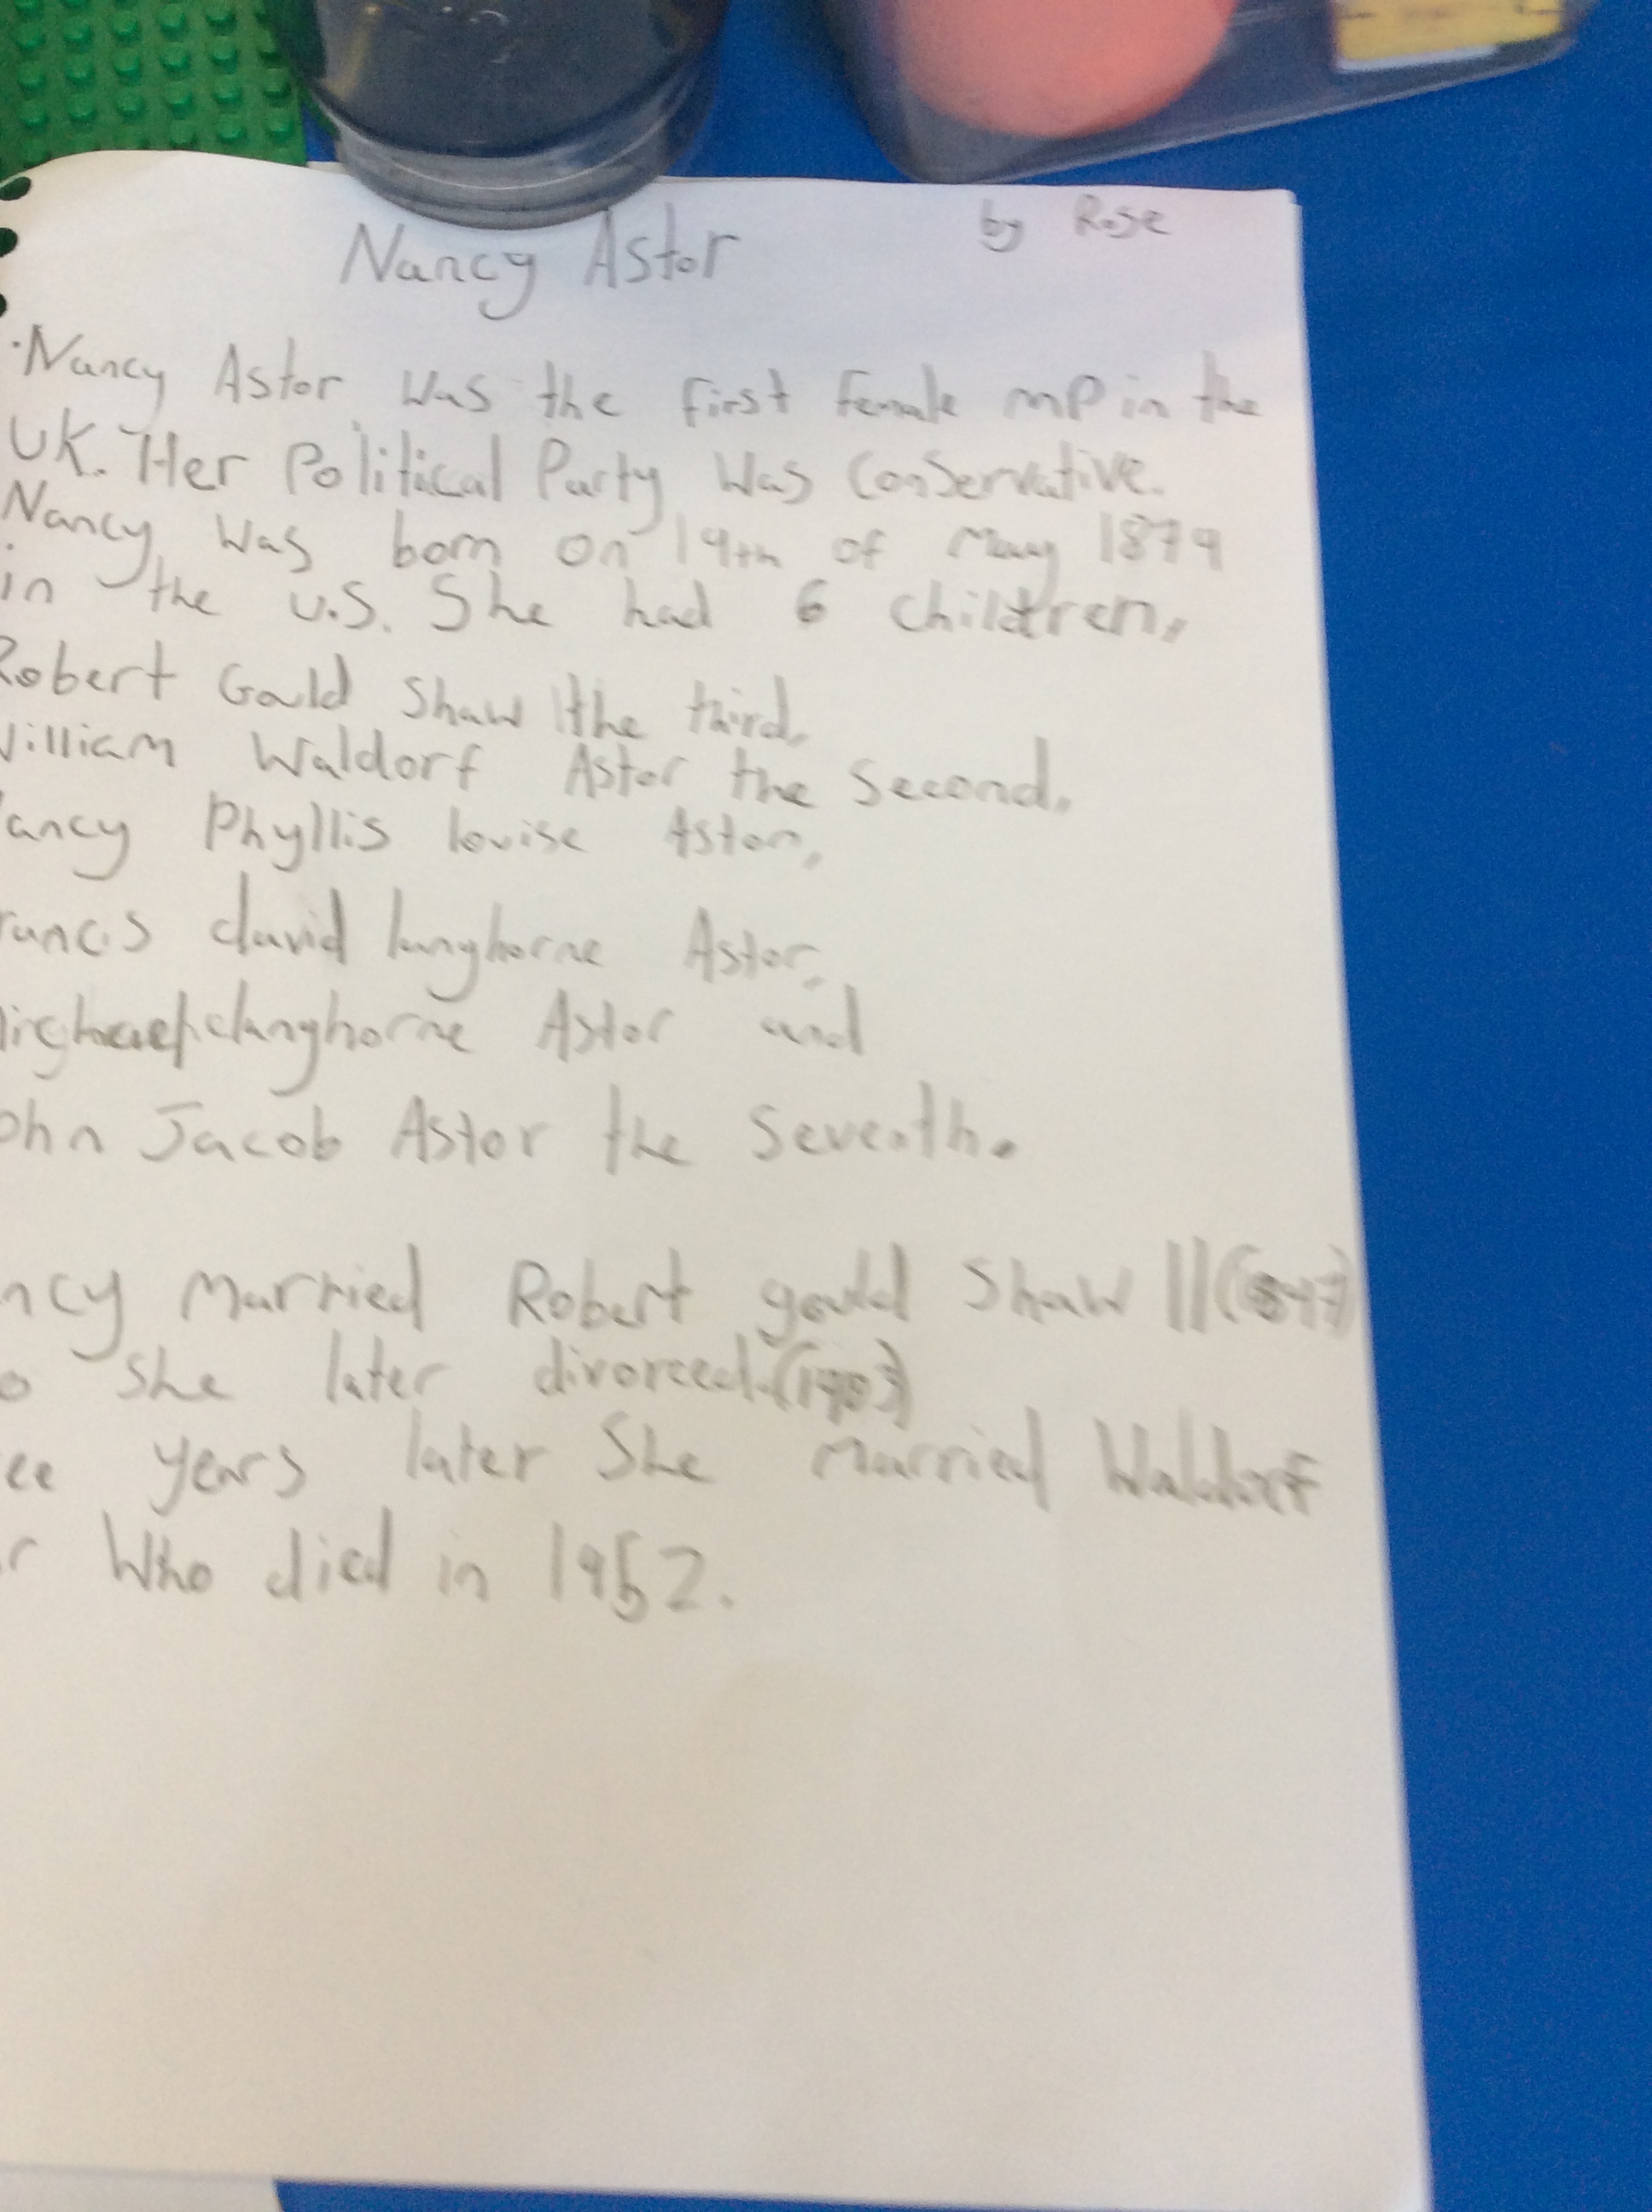 by Rose
Nancy Astor
·Nancy Astor was the first female mp in the
UK. Her Political Party was Conservative.
Nancy was born on 19th of May 1879
in the U.S. She had 6 children,
Robert Gould Shaw the third,
William Waldorf Astor the Second,
ancy Phyllis louise Astor,
rancis david langhorne Astor,
langhorne Astor and
ohn Jacob Astor the Seventh.
ncy married Robert gould Shaw II
o she later divorced. (1903)
ee years later She married Waldorf
r who died in 1952.